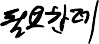 필요한데